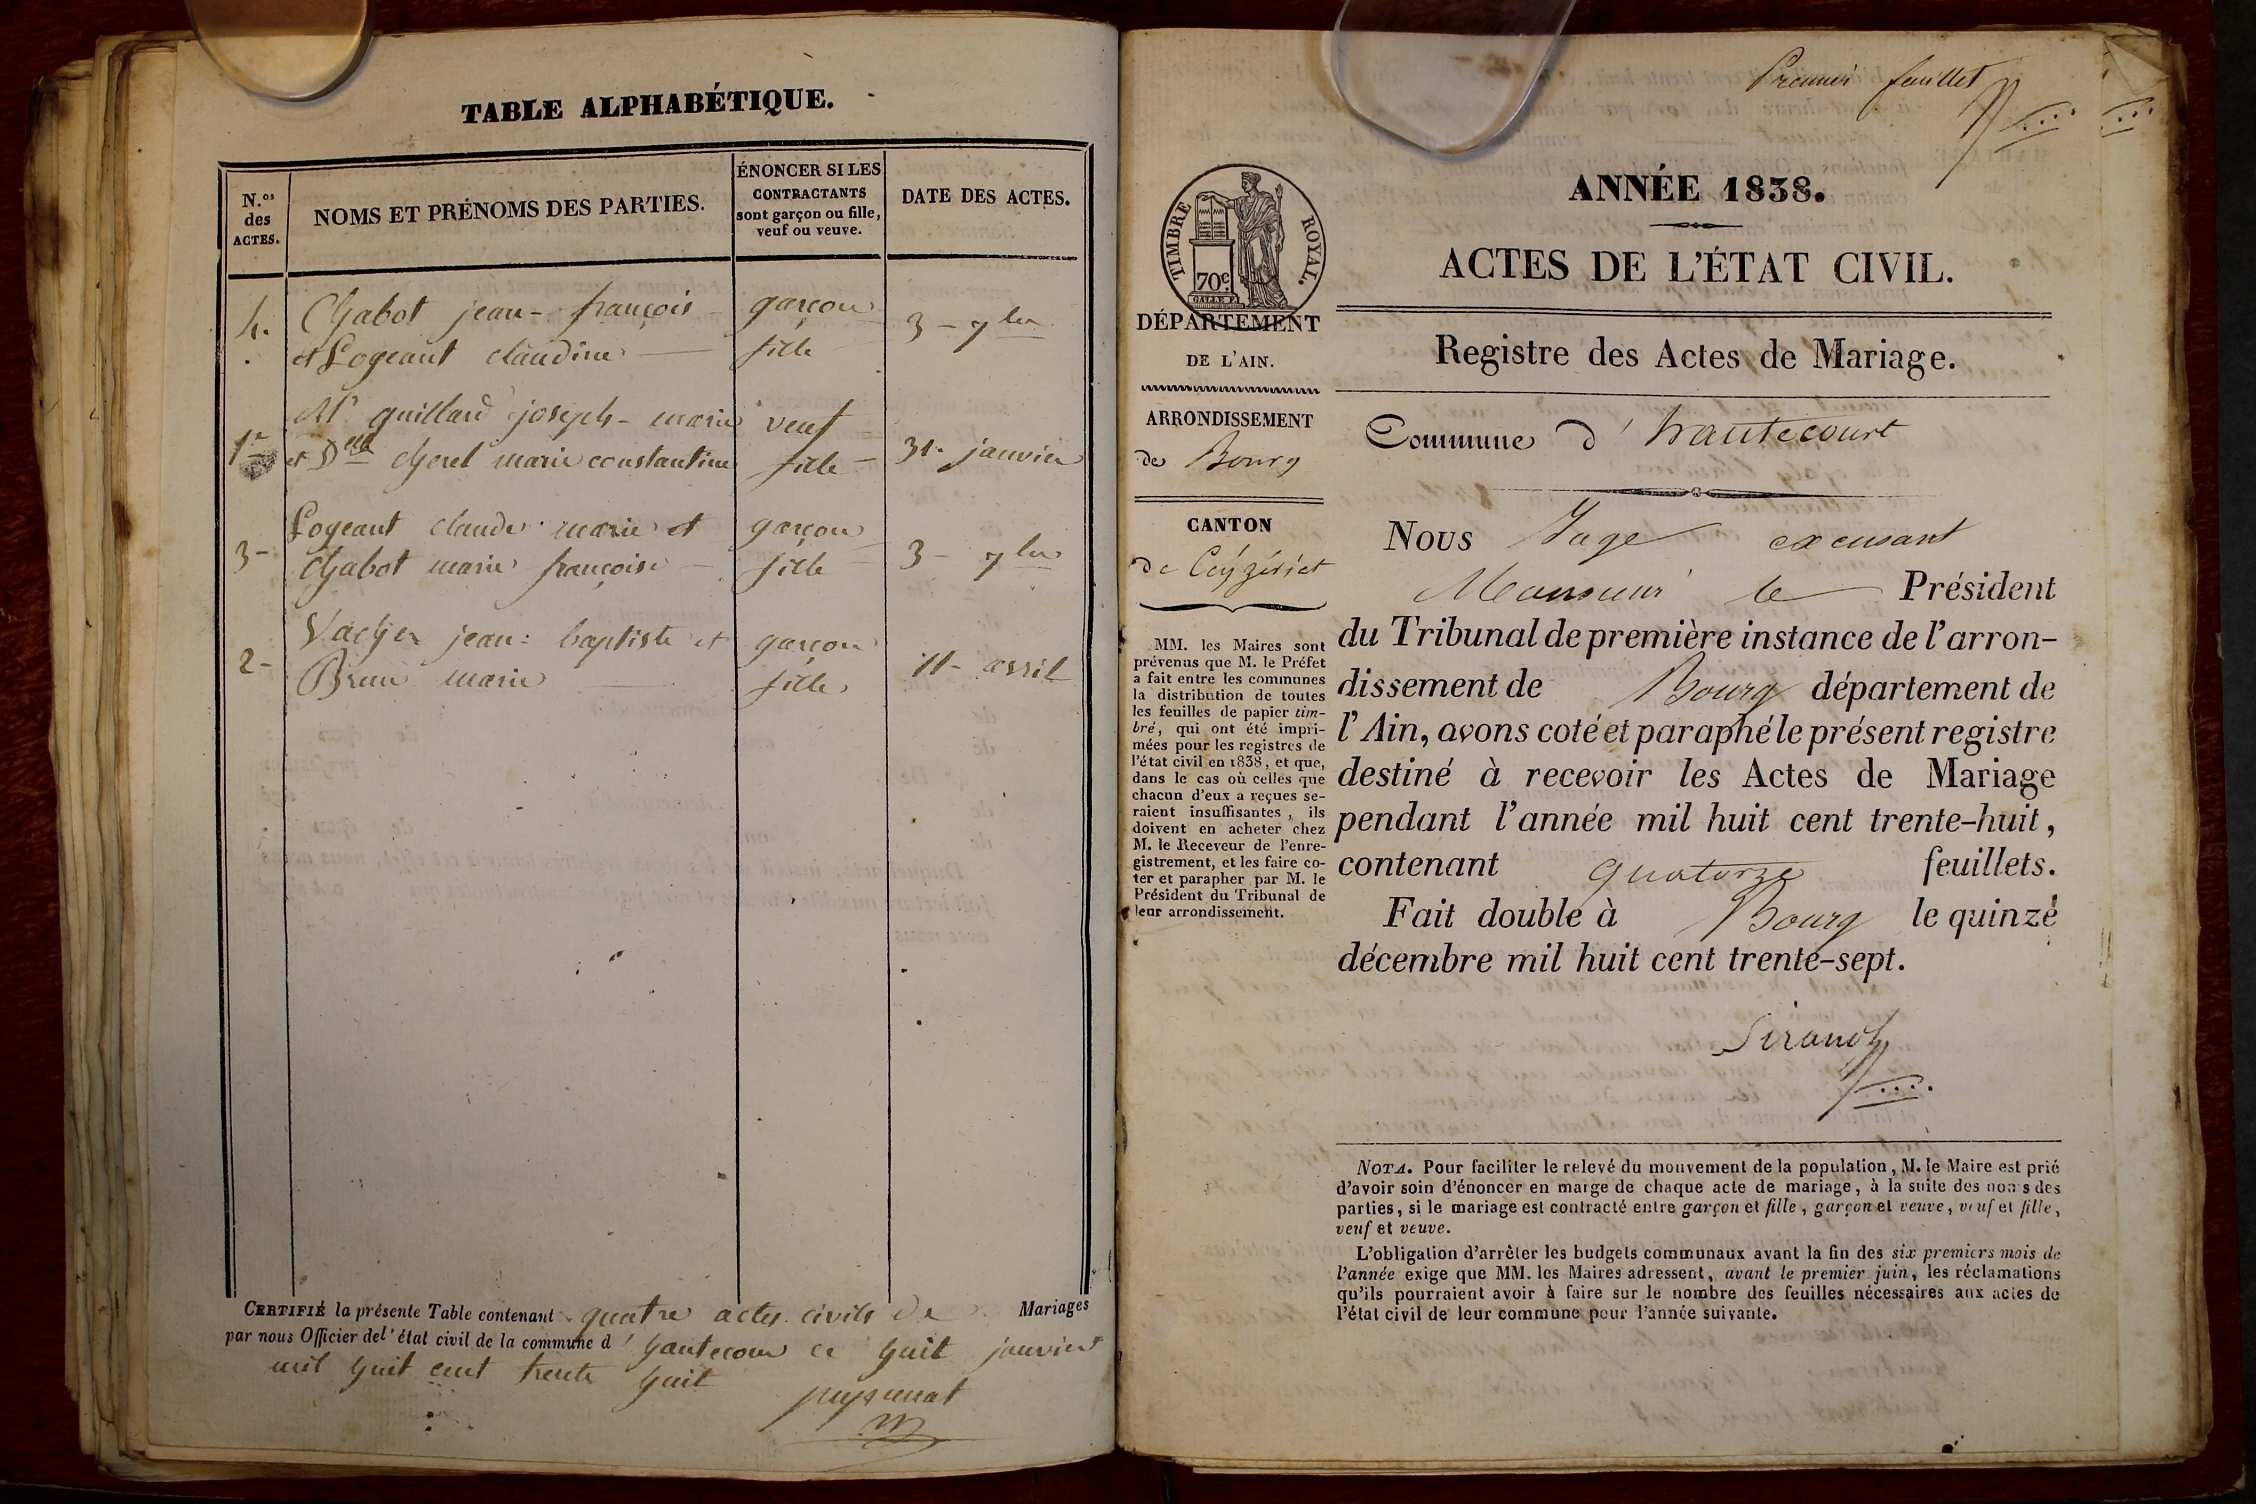 TABLE ALPHABÉTIQUE.
N.os des ACTES.
NOMS ET PRÉNOMS DES PARTIES.
ÉNONCER SI LES
CONTRACTANTS
sont garçon ou fille,
veuf ou veuve.
DATE DES ACTES.
4. Chabot jean-françois garçon 3 - 7bre
et Logeant claudine fille
1er Mr guillard joseph-marie veuf 31. janvier
et Delle cherel marie constantine fille
3- Logeant claude marie et garçon 3 - 7bre
Chabot marie françoise fille
2- Vacher jean-baptiste et garçon 11 - avril
Brun marie fille
CERTIFIÉ la présente Table contenant quatre actes civils de Mariages
par nous Officier de l'état civil de la commune d'hautecour ce huit janvier
mil huit cent trente huit
puysunat
Premier feuillet
TIMBRE ROYAL.
70c.
ANNÉE 1838.
ACTES DE L'ÉTAT CIVIL.
Registre des Actes de Mariage.
DÉPARTEMENT
DE L'AIN.
ARRONDISSEMENT
de Bourg
CANTON
de Ceyzériet
MM. les Maires sont
prévenus que M. le Préfet
a fait entre les communes
la distribution de toutes
les feuilles de papier tim-
bré, qui ont été impri-
mées pour les registres de
l'état civil en 1838, et que,
dans le cas où celles que
chacun d'eux a reçues se-
raient insuffisantes, ils
doivent en acheter chez
M. le Receveur de l'enre-
gistrement, et les faire co-
ter et parapher par M. le
Président du Tribunal de
leur arrondissement.
Commune d'hautecourt
Nous Juge excusant
Monsieur le Président
du Tribunal de première instance de l'arron-
dissement de Bourg département de
l'Ain, avons coté et paraphé le présent registre
destiné à recevoir les Actes de Mariage
pendant l'année mil huit cent trente-huit,
contenant quatorze feuillets.
Fait double à Bourg le quinze
décembre mil huit cent trente-sept.
Sirand
NOTA. Pour faciliter le relevé du mouvement de la population, M. le Maire est prié
d'avoir soin d'énoncer en marge de chaque acte de mariage, à la suite des noms des
parties, si le mariage est contracté entre garçon et fille, garçon et veuve, veuf et fille,
veuf et veuve.
L'obligation d'arrêter les budgets communaux avant la fin des six premiers mois de
l'année exige que MM. les Maires adressent, avant le premier juin, les réclamations
qu'ils pourraient avoir à faire sur le nombre des feuilles nécessaires aux actes de
l'état civil de leur commune pour l'année suivante.